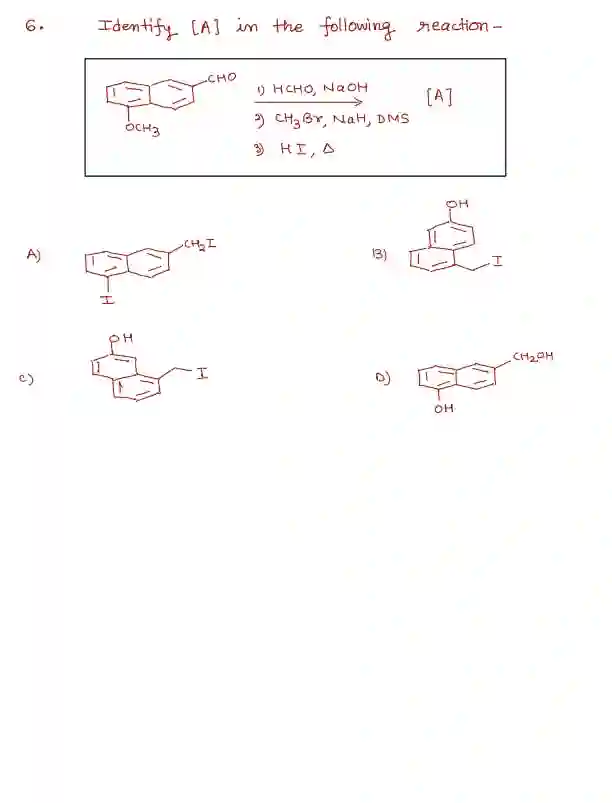 6. Identify [A] in the following reaction-
CHO
OCH3
1) HCHO, NaOH
2) CH3Br, NaH, DMS
3) HI, Δ
[A]
A)
CH2I
I
B)
OH
I
C)
OH
I
D)
CH2OH
OH